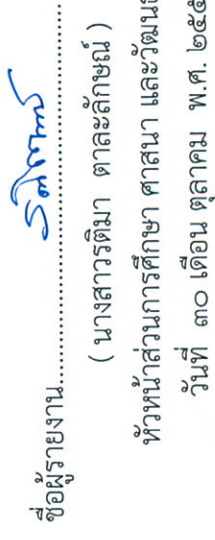 ชื่อผู้รายงาน
( นางสาวรติมา ตาละลักษณ์ )
หัวหน้าส่วนการศึกษา ศาสนา และวัฒน
วันที่ ๓๐ เดือน ตุลาคม พ.ศ. ๒๕๕